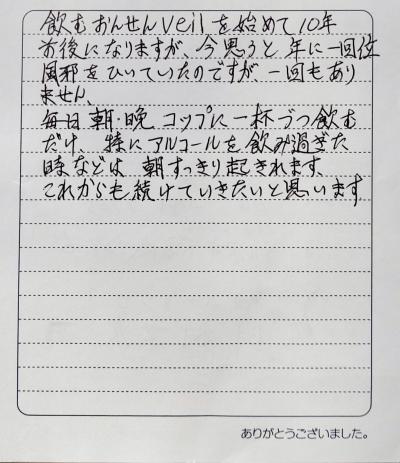 飲むおんせんVeilを始めて10年
前後になりますが、今思うと年に一回位
風邪をひいていたのですが、一回もあり
ません、
毎日 朝・晩 コップに一杯づつ飲む
だけ、特にアルコールを飲み過ぎた
時などは 朝すっきり起きれます、
これからも続けていきたいと思います。
ありがとうございました。